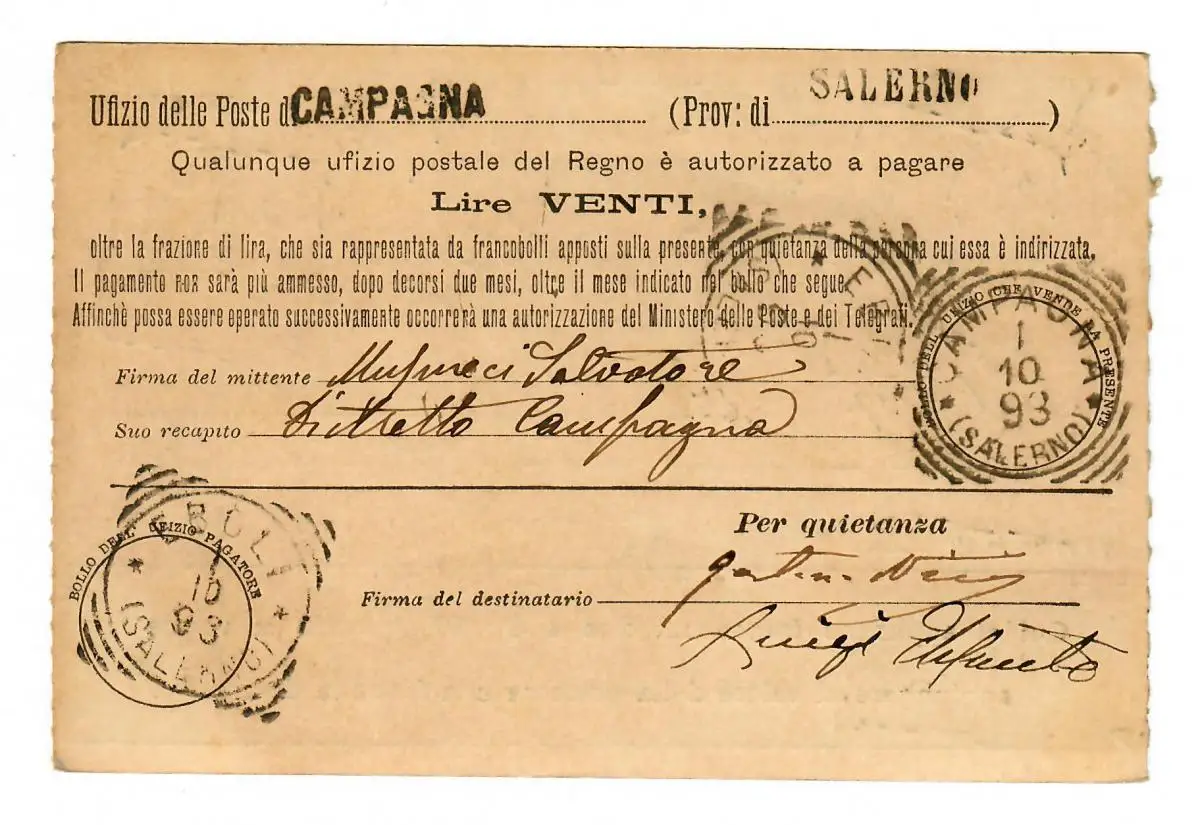 Ufizio delle Poste d CAMPAGNA (Prov: di SALERNO)
Qualunque ufizio postale del Regno è autorizzato a pagare
Lire VENTI,
oltre la frazione di lira, che sia rappresentata da francobolli apposti sulla presente, con quietanza della persona cui essa è indirizzata.
Il pagamento non sarà più ammesso, dopo decorsi due mesi, oltre il mese indicato nel bollo che segue.
Affinchè possa essere operato successivamente occorrerà una autorizzazione del Ministero delle Poste e dei Telegrafi.
BOLLO DELL' UFIZIO CHE VENDE LA PRESENTE
CAMPAGNA
1
10
93
(SALERNO)
Firma del mittente Salvatore
Suo recapito Distretto Campagna
BOLLO DELL' UFIZIO PAGATORE
EBOLI
1
10
93
(SALERNO)
Per quietanza
Firma del destinatario
Luigi